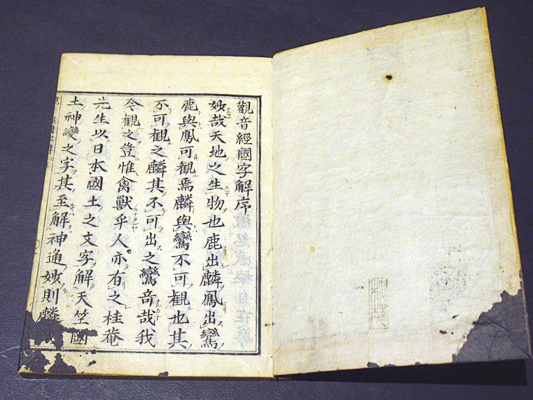 觀音經國字解序
妙哉天地之生物也鹿出麟鳳出鸞
鹿與鳳可觀焉麟與鸞不可觀也其
不可觀之麟其不可出之鸞奇哉我
今觀之豈惟禽獸乎人亦有之桂菴
先生以日本國土之文字解天竺國
土神變之字其至解神通妙則麟